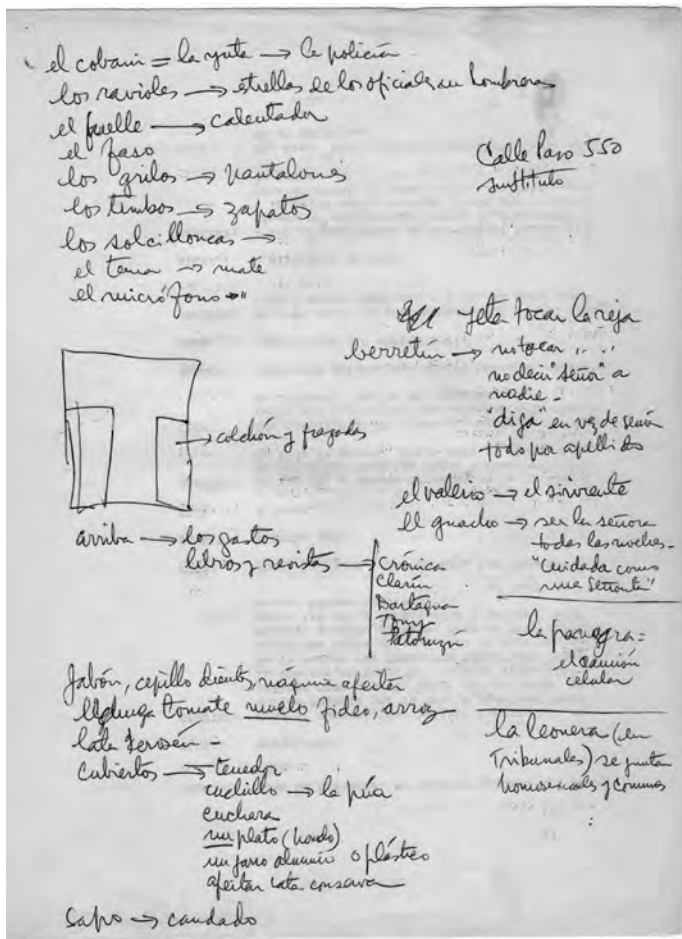 el cobani = la yuta → la policía
los ravioles → estrellas de los oficiales en hombreras
el fuelle → calentador
el faso
los grilos → pantalones
los timbos → zapatos
los solcilloncas →
el tema → mate
el micrófono → "
Calle Paso 550
instituto
yeta tocar la reja
berretín → no tocar " "
no decir "señor" a
nadie -
"diga" en vez de señor
todo por apellido
→ colchón y frazadas
el valerio → el sirviente
el guacho → ser la señora
todas las noches -
"Cuidada como
una Señorita"
arriba → los gastos
libros y revistas → Crónica
Clarín
Dartagnan
Tony
Patoruzú
la panagra =
el camión
celular
la leonera (en
Tribunales) se juntan
homosexuales y comunes
Jabón, cepillo dientes, máquina afeitar
tomate fideo, arroz
lata kerosén -
Cubiertos → tenedor
cuchillo → la púa
cuchara
un plato (hondo)
un jarro aluminio o plástico
afeitar lata conserva
Sapo → candado